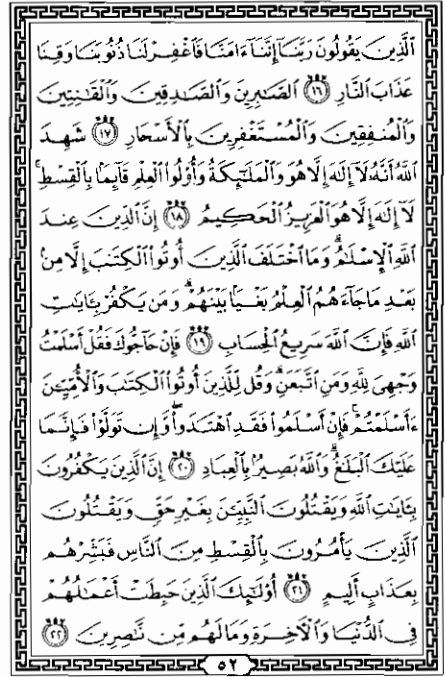 ٱلَّذِينَ يَقُولُونَ رَبَّنَآ إِنَّنَآ ءَامَنَّا فَٱغْفِرْ لَنَا ذُنُوبَنَا وَقِنَا
عَذَابَ ٱلنَّارِ ١٦ ٱلصَّٰبِرِينَ وَٱلصَّٰدِقِينَ وَٱلْقَٰنِتِينَ
وَٱلْمُنفِقِينَ وَٱلْمُسْتَغْفِرِينَ بِٱلْأَسْحَارِ ١٧ شَهِدَ
ٱللَّهُ أَنَّهُۥ لَآ إِلَٰهَ إِلَّا هُوَ وَٱلْمَلَٰٓئِكَةُ وَأُو۟لُوا۟ ٱلْعِلْمِ قَآئِمًۢا بِٱلْقِسْطِ ۚ
لَآ إِلَٰهَ إِلَّا هُوَ ٱلْعَزِيزُ ٱلْحَكِيمُ ١٨ إِنَّ ٱلدِّينَ عِندَ
ٱللَّهِ ٱلْإِسْلَٰمُ ۗ وَمَا ٱخْتَلَفَ ٱلَّذِينَ أُوتُوا۟ ٱلْكِتَٰبَ إِلَّا مِنۢ
بَعْدِ مَا جَآءَهُمُ ٱلْعِلْمُ بَغْيًۢا بَيْنَهُمْ ۗ وَمَن يَكْفُرْ بِـَٔايَٰتِ
ٱللَّهِ فَإِنَّ ٱللَّهَ سَرِيعُ ٱلْحِسَابِ ١٩ فَإِنْ حَآجُّوكَ فَقُلْ أَسْلَمْتُ
وَجْهِىَ لِلَّهِ وَمَنِ ٱتَّبَعَنِ ۗ وَقُل لِّلَّذِينَ أُوتُوا۟ ٱلْكِتَٰبَ وَٱلْأُمِّيِّـۧنَ
ءَأَسْلَمْتُمْ ۚ فَإِنْ أَسْلَمُوا۟ فَقَدِ ٱهْتَدَوا۟ ۖ وَّإِن تَوَلَّوْا۟ فَإِنَّمَا
عَلَيْكَ ٱلْبَلَٰغُ ۗ وَٱللَّهُ بَصِيرٌۢ بِٱلْعِبَادِ ٢٠ إِنَّ ٱلَّذِينَ يَكْفُرُونَ
بِـَٔايَٰتِ ٱللَّهِ وَيَقْتُلُونَ ٱلنَّبِيِّـۧنَ بِغَيْرِ حَقٍّ وَيَقْتُلُونَ
ٱلَّذِينَ يَأْمُرُونَ بِٱلْقِسْطِ مِنَ ٱلنَّاسِ فَبَشِّرْهُم
بِعَذَابٍ أَلِيمٍ ٢١ أُو۟لَٰٓئِكَ ٱلَّذِينَ حَبِطَتْ أَعْمَٰلُهُمْ
فِى ٱلدُّنْيَا وَٱلْءَاخِرَةِ وَمَا لَهُم مِّن نَّٰصِرِينَ ٢٢
٥٢